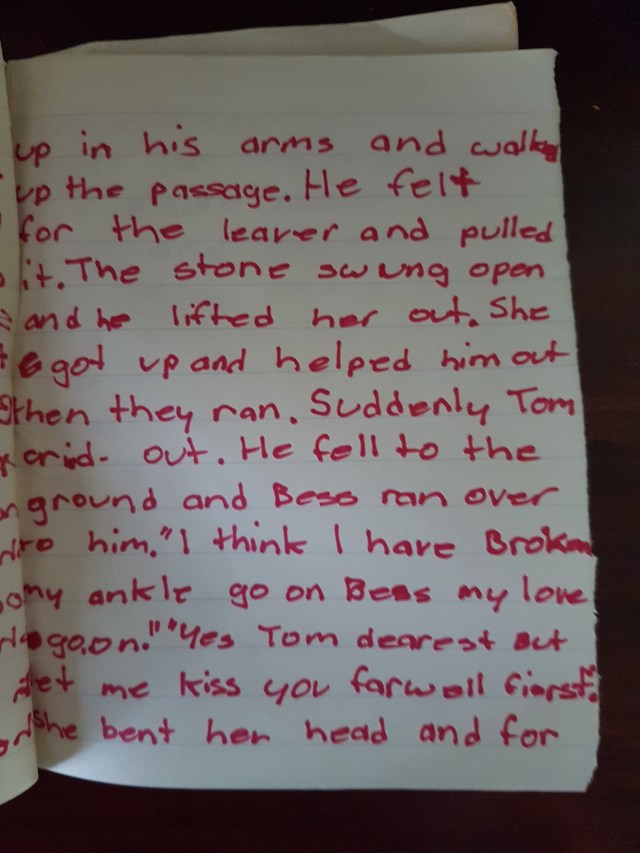 up in his arms and walked
up the passage. He felt
for the leaver and pulled
it. The stone swung open
and he lifted her out. She
got up and helped him out
then they ran. Suddenly Tom
cried out. He fell to the
ground and Bess ran over
to him. "I think I have Broken
my ankle go on Bess my love
go.on." "Yes Tom dearest But
let me kiss you farwell fiarst."
she bent her head and for